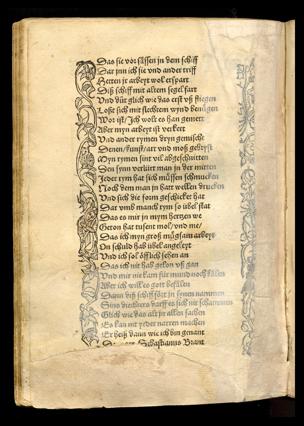 Das sie vor sässen jn dem schiff
Dar jnn ich sie vnd ander triff
Hetten jr arbeyt wol erspart
Diß schiff mit altem segel fart
Vnd düt glich wie das erst vß fliegen
Loßt sich mit slechtem wynd benügen
Wor ist / Ich wolt es han gemert
Aber myn arbeyt ist verkert
Vnd ander rymen dryn gemischt
Denen / kunst / art vnd moß gebryst
Myn rymen sint vil abgeschnitten
Den synn verlürt man jn der mitten
Jeder rym hat sich müssen schmucken
Noch dem man jn hatt wellen drucken
Vnd sich die form geschicket hat
Dar vmb manch rym so übel stat
Das es mir jn mym hertzen we
Geton hat tusent mol / vnd me /
Das ich myn groß mügsam arbeyt
On schuld hab übel angeleyt
Vnd ich sol öfflich sehen an
Das ich nit hab gelon vß gan
Vnd mir nie kam für mund noch kälen
Aber ich will es gott befälen
Dann diß schiff fört jn synen nammen
Sins dichters darff es sich nit schammen
Glich wie das alt jn allen sachen
Es kan nit yeder narren machen
Er heiß dann wie ich bin genant
Sebastianus Brant